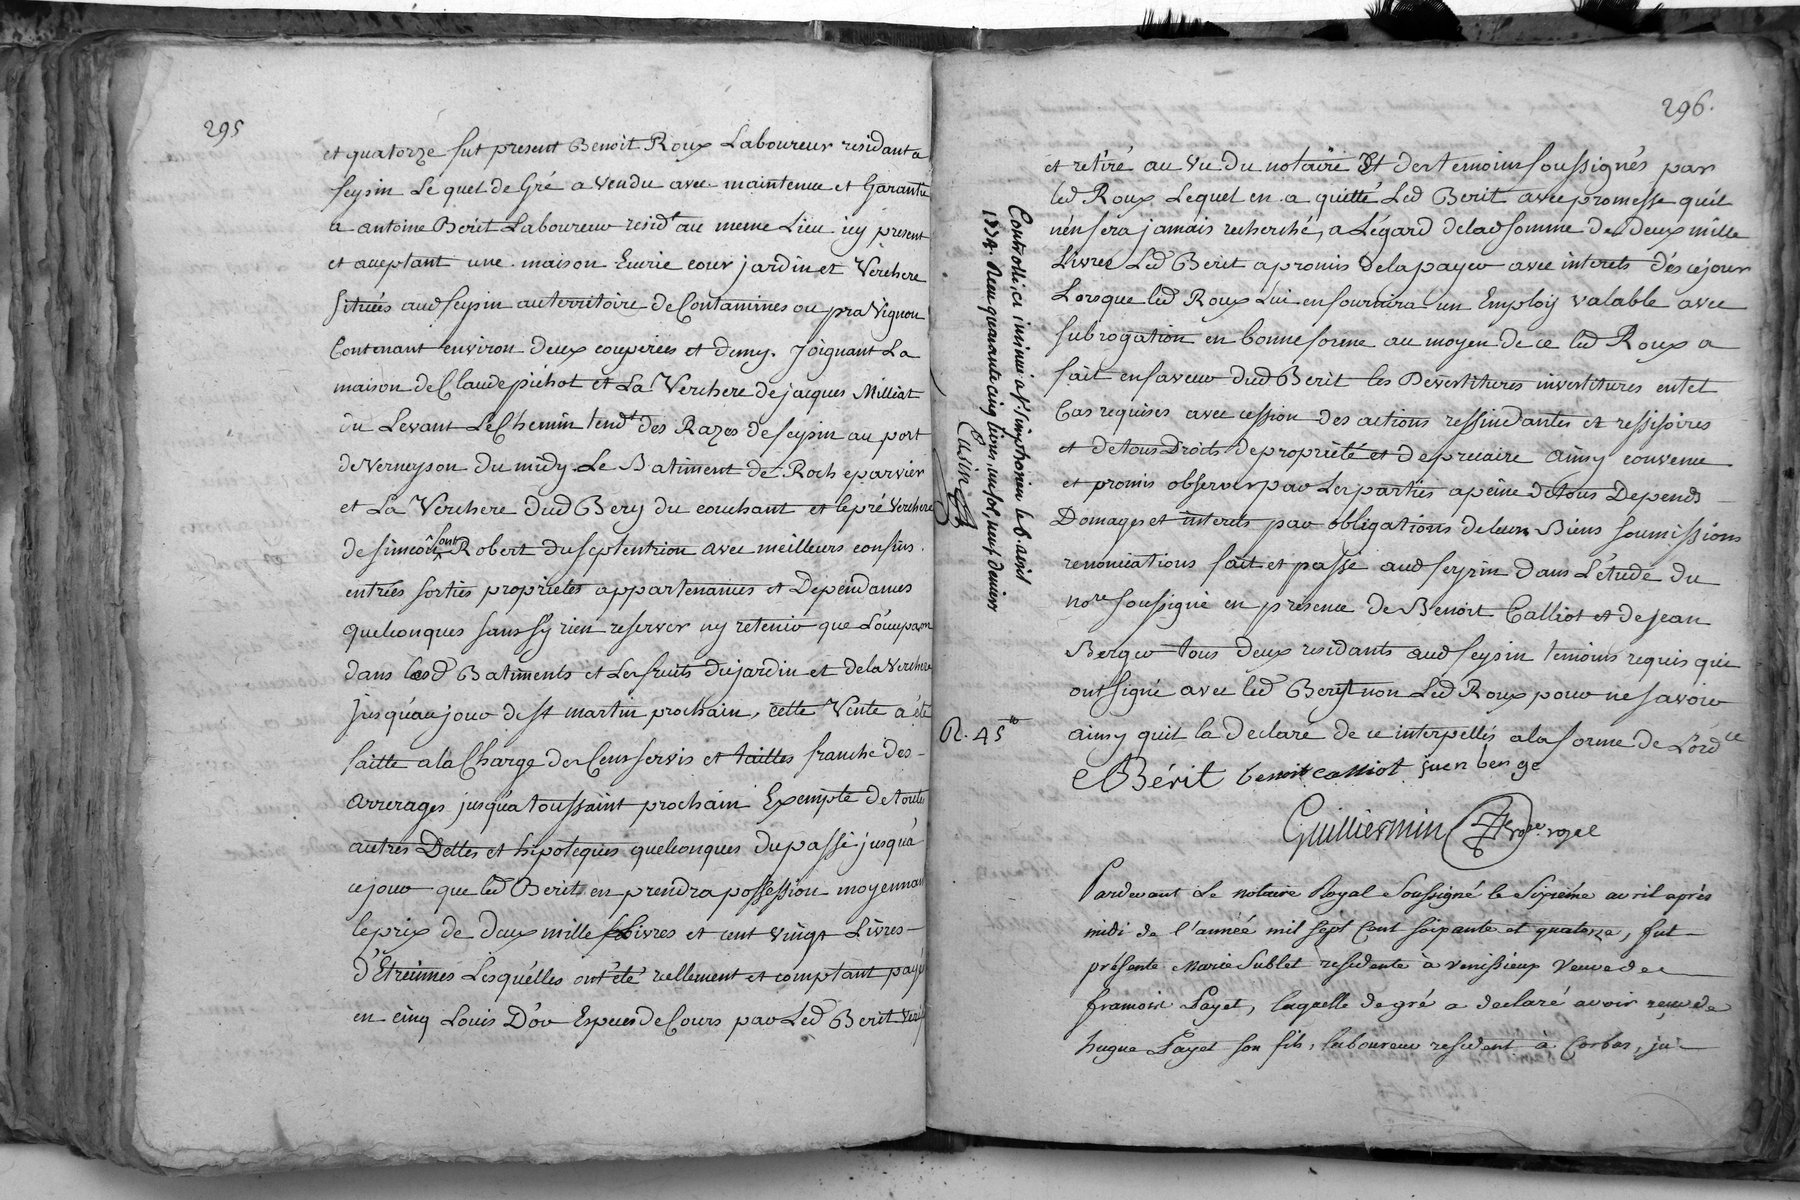 295
et quatorze fut present Benoit Roux Laboureur residant a
feysin Lequel de Gré a vendu avec maintenue et Garantie
a antoine Berit Laboureur resid.t au meme Lieu icy present
et acceptant une maison Ecurie cour jardin et Verchere
situées aud feysin au territoire de Contamines ou pra Vignon
Contenant environ deux couperées et demy. Joignant La
maison de Claude pichot et La Verchere de jacques Milliat
du Levant Le Chemin tend.t des Razes de feysin au port
de Verneyson du midy. Le Batiment de Roch eparvier
et La Verchere dud Bery du couchant et le pré Verchere
de simeon Robert du septentrion avec meilleurs confins.
entrées sorties proprietes appartenances et Dependances
quelconques sans sy rien reserver ny retenir que L'occupaon
dans lesd Batiments et Les fruits du jardin et de la Verchere
jusqu'au jour de st martin prochain, cette Vente a été
faitte a la Charge des Cens servis et tailles franche des-
arrerages jusqu'a toussaint prochain Exempte de toutes
autres Dettes et hipoteques quelconques du passé jusqu'a
ce jour que led Berit en prendra possession moyennant
le prix de deux mille Livres et cent vingt Livres-
d'Etreinnes Lesquélles ont été réellement et comptant payé
en cinq Louis D'or Especes de Cours par Led Berit
296.
et retiré au vu du notaire Et des temoins soussignés par
led Roux Lequel en a quitté Led Berit avec promesse qu'il
n'en sera jamais recherché, a L'égard de lad somme de deux mille
Livres Led Berit a promis de la payer avec interets dès ce jour
Lorsque led Roux Lui en fournira un Employ valable avec
subrogation en bonne forme au moyen de ce led Roux a
fait en faveur dud Berit les Devestitures investitures en tel
Cas requises avec cession des actions ressindantes et ressisoires
et de tous Droits de proprieté et de precaire ainsy convenu
et promis observer par Les parties a peine de tous Depends
Domages et interets par obligations de leurs Biens soumissions
renonciations fait et passé aud feyzin dans L'étude du
no.re soussigné en presence de Benoit Calliot et de jean
Berger tous deux residants aud feysin temoins requis qui
ont signé avec led Berit non Led Roux pour ne savoir
ainsy qu'il la declaré de ce interpellés a la forme de L'ord.ce
Bérit benoit calliot juen ben ge
Guilliermin no.re royal
Controllé, et insinué a S.t simphorien le 8. avril
1774. Reçu quarante cinq livres, un sol, neuf deniers
Cusin
R. 45
Pardevant Le notaire Royal Soussigné le Sixiéme avril après
midi de l'année mil sept Cent soixante et quatorze, fut-
présente Marie Sublet residente à venissieux Veuve de
francois Payet, laquelle de gré a declaré avoir reçu de
hugue Payet son fils, laboureur resident à Corbas,